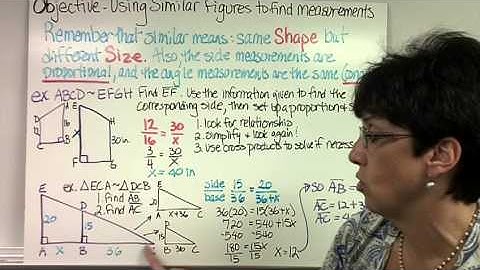 Objective - Using Similar figures to find measurements
Remember that similar means: same Shape but
different Size. Also, the side measurements are
proportional, and the angle measurements are the same
ex. ABCD ~ EFGH Find EF. Use the information given to find the
corresponding side, then set up a proportion &
12/16 = 30/x
3/4 = 30/x
x = 40 in
1. look for relationship
2. Simplify & look again!
3. Use cross products to solve if necess
E
H
X
30in
F
G
16
B
C
ex. ΔECA ~ ΔDCB
1. Find AB
2. Find AC
E
20
D
15
A
X
B
36
E
20
A
X+36
C
15
B
36
C
side
base
15/36 = 20/36+x
36(20) = 15(36+x)
720 = 540 + 15x
-540 -540
180/15 = 15x/15
X=12
→ So AB =
AC = 12+
AC =